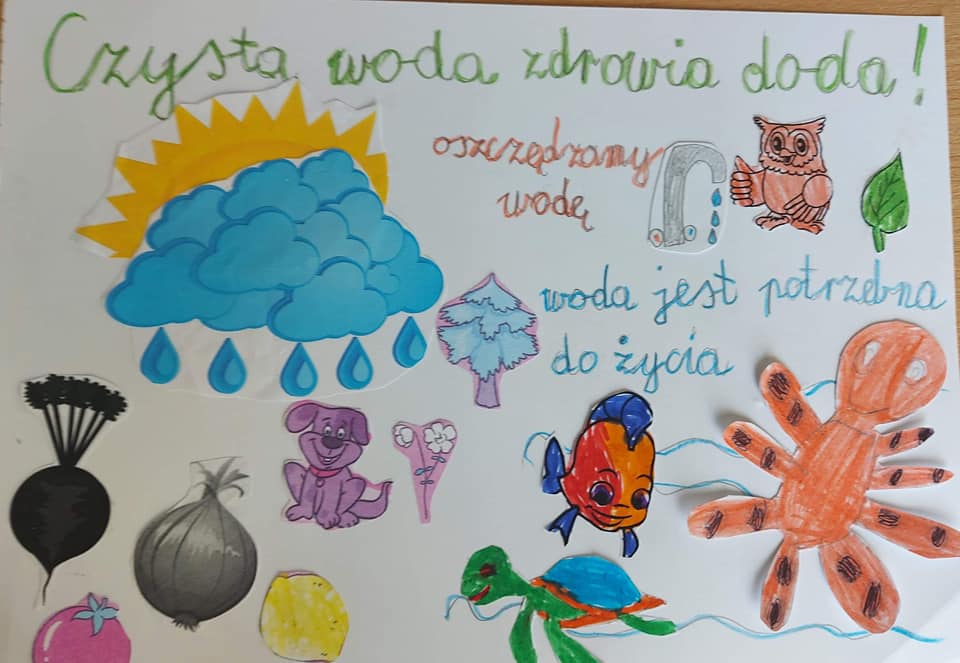 Czysta woda zdrowia doda!
oszczędzamy
wodę
woda jest potrzebna
do życia